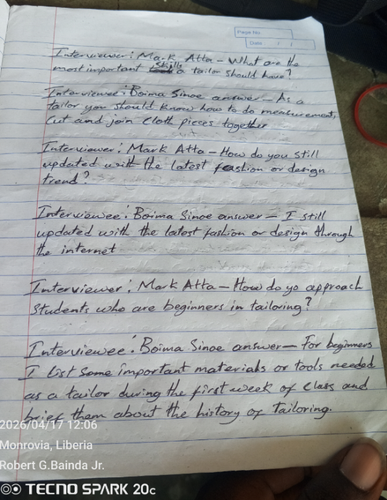 Page No.
Date / /
Interviewer: Mark Atta - What are the
skills
most important a tailor should have?
Interviewee: Boima Sinoe answer - As a
tailor you should know how to do measurement,
Cut and join cloth pieces together
Interviewer: Mark Atta - How do you still
updated with the latest fashion or design
trend?
Interviewee: Boima Sinoe answer - I still
updated with the latest fashion or design through
the internet
Interviewer: Mark Atta - How do yo approach
students who are beginners in tailoring?
Interviewee: Boima Sinoe answer - For beginners
I list some important materials or tools needed
as a tailor during the first week of class and
brief them about the history of tailoring.
2026/04/17 12:06
Monrovia, Liberia
Robert G.Bainda Jr.
TECNO SPARK 20c